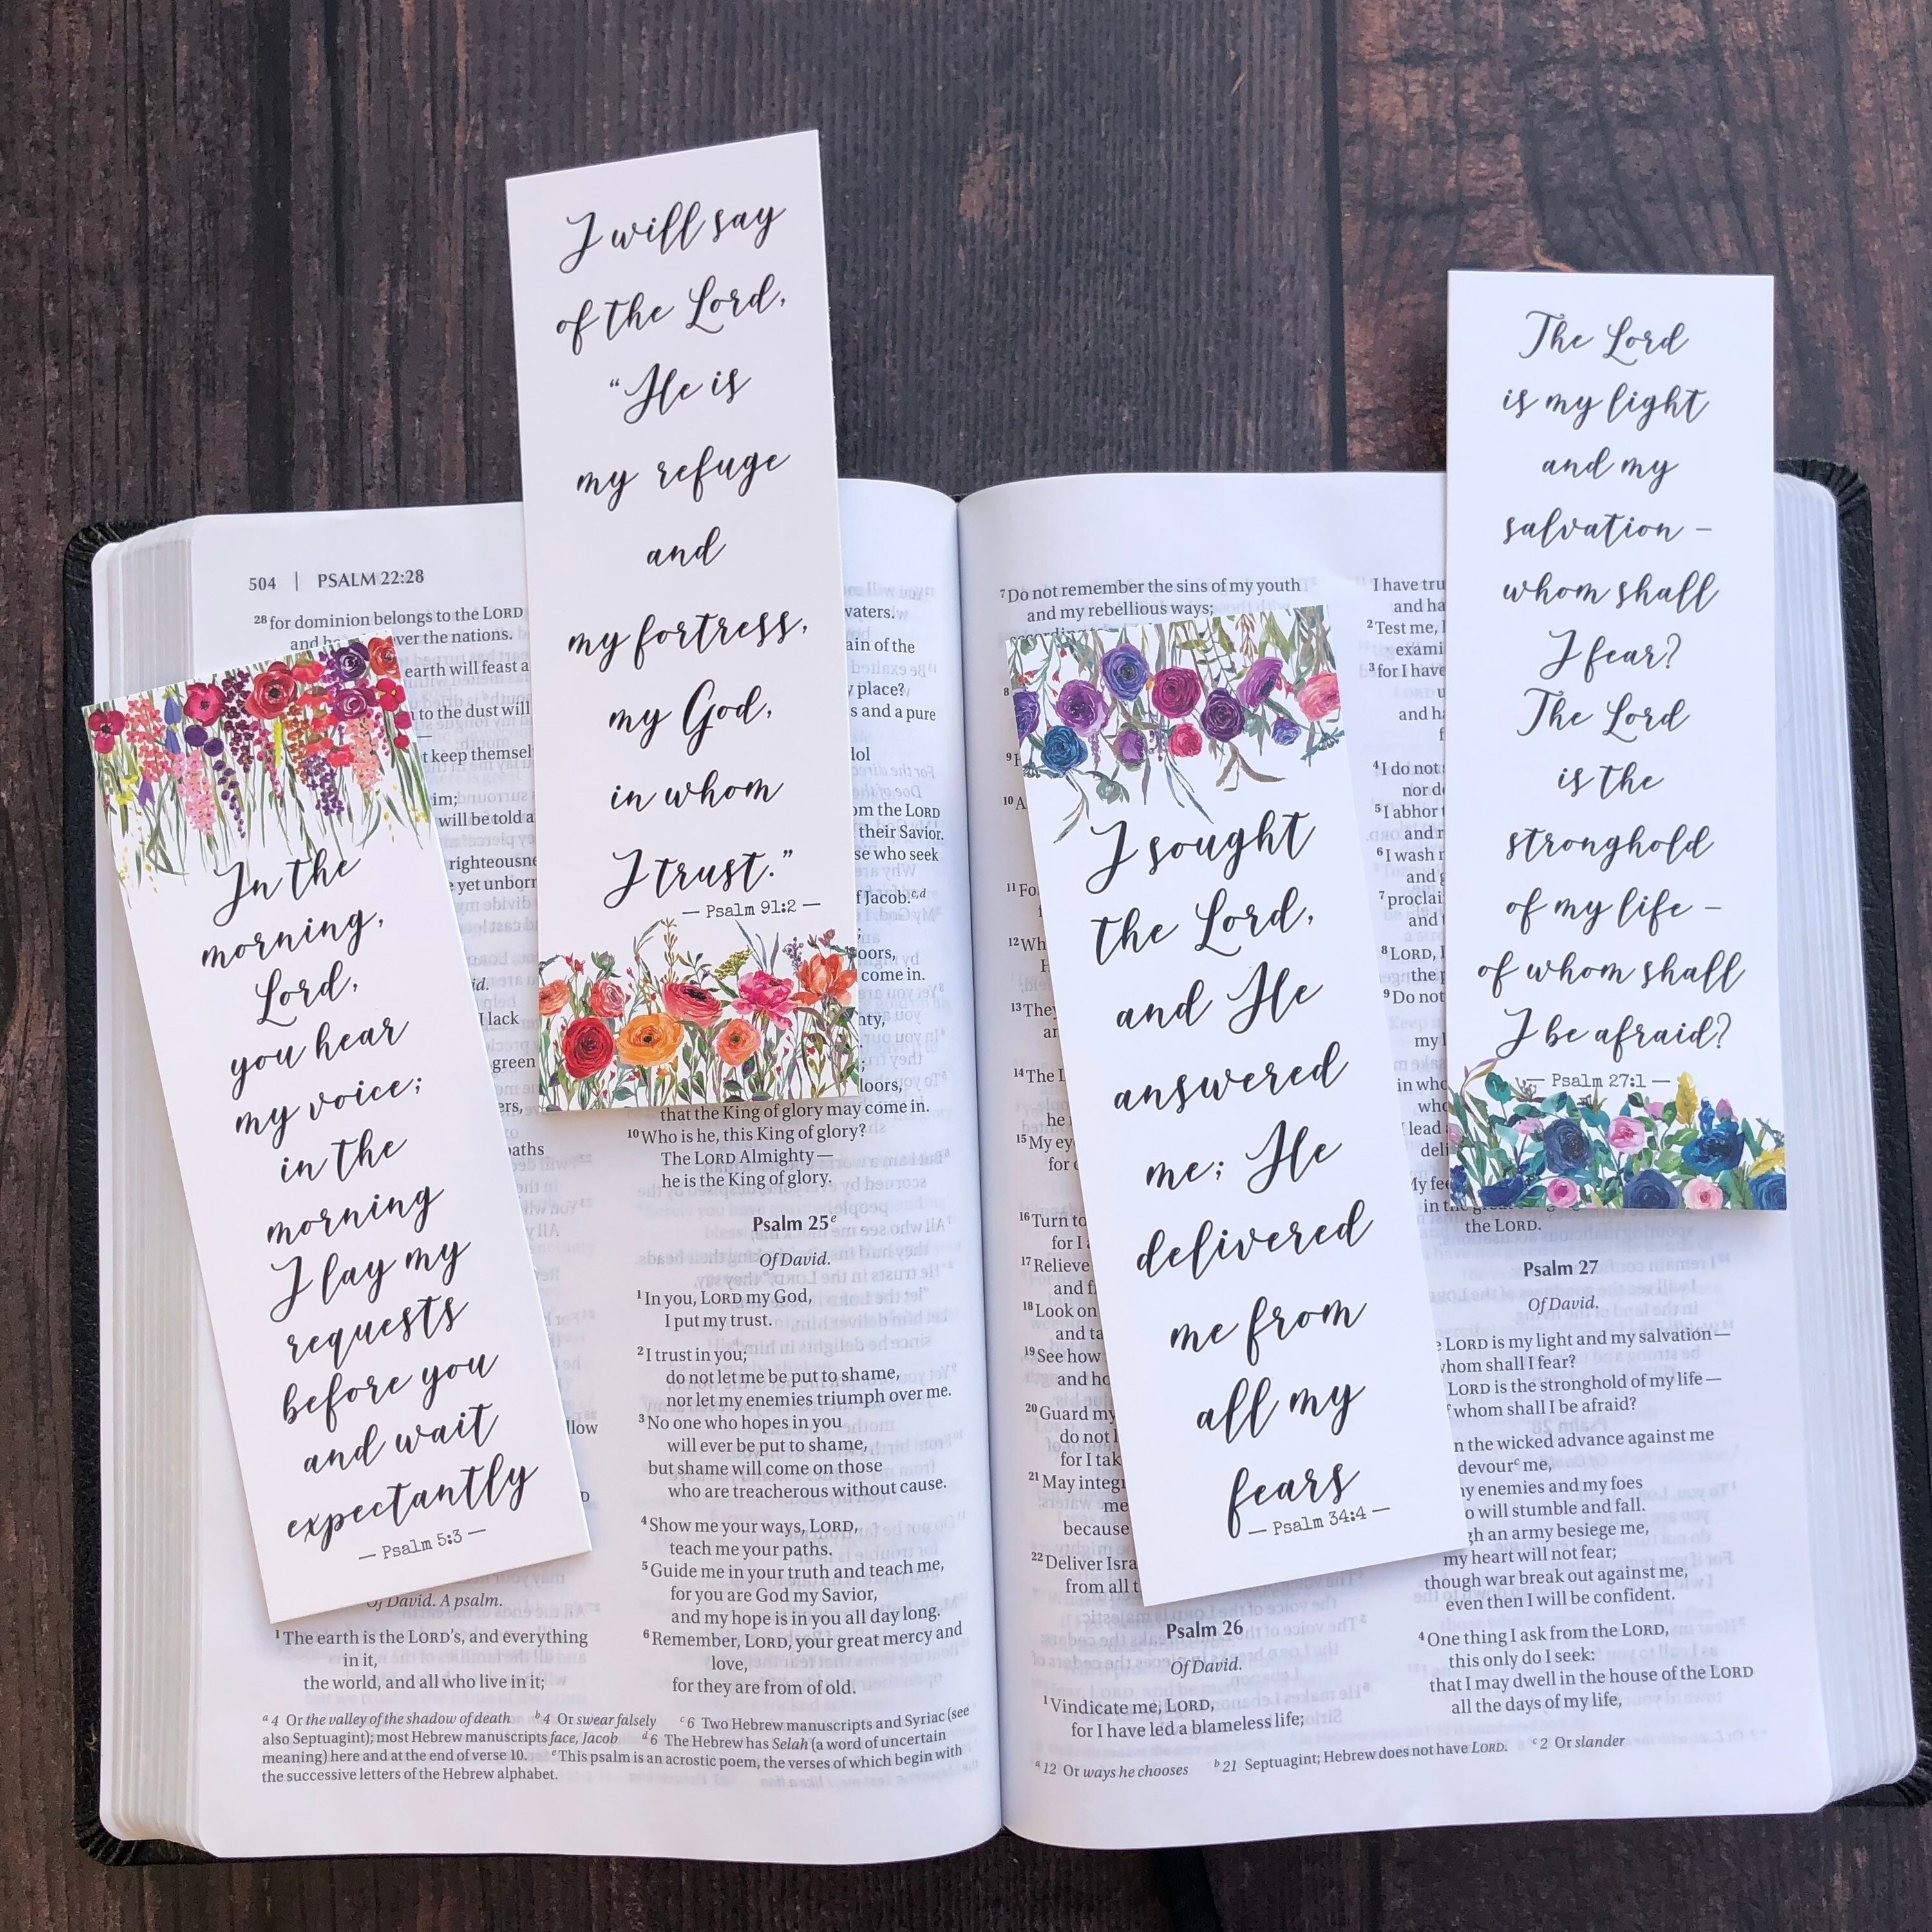 In the
morning,
Lord,
you hear
my voice;
in the
morning
I lay my
requests
before you
and wait
expectantly
— Psalm 5:3 —
I will say
of the Lord,
“He is
my refuge
and
my fortress,
my God,
in whom
I trust.”
— Psalm 91:2 —
I sought
the Lord,
and He
answered
me; He
delivered
me from
all my
fears
— Psalm 34:4 —
The Lord
is my light
and my
salvation –
whom shall
I fear?
The Lord
is the
stronghold
of my life –
of whom shall
I be afraid?
— Psalm 27:1 —
504 | PSALM 22:28
28 for dominion belongs to the LORD
and ver the nations.
earth will feast
to the dust will
keep
will be told
yet
I lack
green
Of David. A psalm.
1 The earth is the LORD's, and everything
in it,
the world, and all who live in it;
a 4 Or the valley of the shadow of death b 4 Or swear falsely c 6 Two Hebrew manuscripts and Syriac (see
also Septuagint); most Hebrew manuscripts face, Jacob d 6 The Hebrew has Selah (a word of uncertain
meaning) here and at the end of verse 10. e This psalm is an acrostic poem, the verses of which begin with
the successive letters of the Hebrew alphabet.
of the
place?
s and a pure
the LORD
their Savior.
se who seek
of Jacob.c,d
come in.
that the King of glory may come in.
10 Who is he, this King of glory?
The LORD Almighty—
he is the King of glory.
Psalm 25e
Of David.
1 In you, LORD my God,
I put my trust.
2 I trust in you;
do not let me be put to shame,
nor let my enemies triumph over me.
3 No one who hopes in you
will ever be put to shame,
but shame will come on those
who are treacherous without cause.
4 Show me your ways, LORD,
teach me your paths.
5 Guide me in your truth and teach me,
for you are God my Savior,
and my hope is in you all day long.
6 Remember, LORD, your great mercy and
love,
for they are from of old.
7 Do not remember the sins of my youth
and my rebellious ways;
8
9
10
11
12
13 They
14 The
he
15 My
for
16 Turn to
for I
17 Relieve
and
18 Look on
and
19 See how
and
20 Guard my
do not
for I
21 May
me
because
22 Deliver
from all
Psalm 26
Of David.
1 Vindicate me, LORD,
for I have led a blameless life;
I have
and
2 Test me,
3 for I have
and
4 I do not
nor
5 I abhor
and
6 I wash
and
7
and
8 LORD,
the
9 Do not
my
in
lead
in the
the LORD.
Psalm 27
Of David.
LORD is my light and my salvation—
whom shall I fear?
LORD is the stronghold of my life—
whom shall I be afraid?
the wicked advance against me
devour c me,
my enemies and my foes
will stumble and fall.
an army besiege me,
my heart will not fear;
though war break out against me,
even then I will be confident.
4 One thing I ask from the LORD,
this only do I seek:
that I may dwell in the house of the LORD
all the days of my life,
a 12 Or ways he chooses b 21 Septuagint; Hebrew does not have LORD. c 2 Or slander